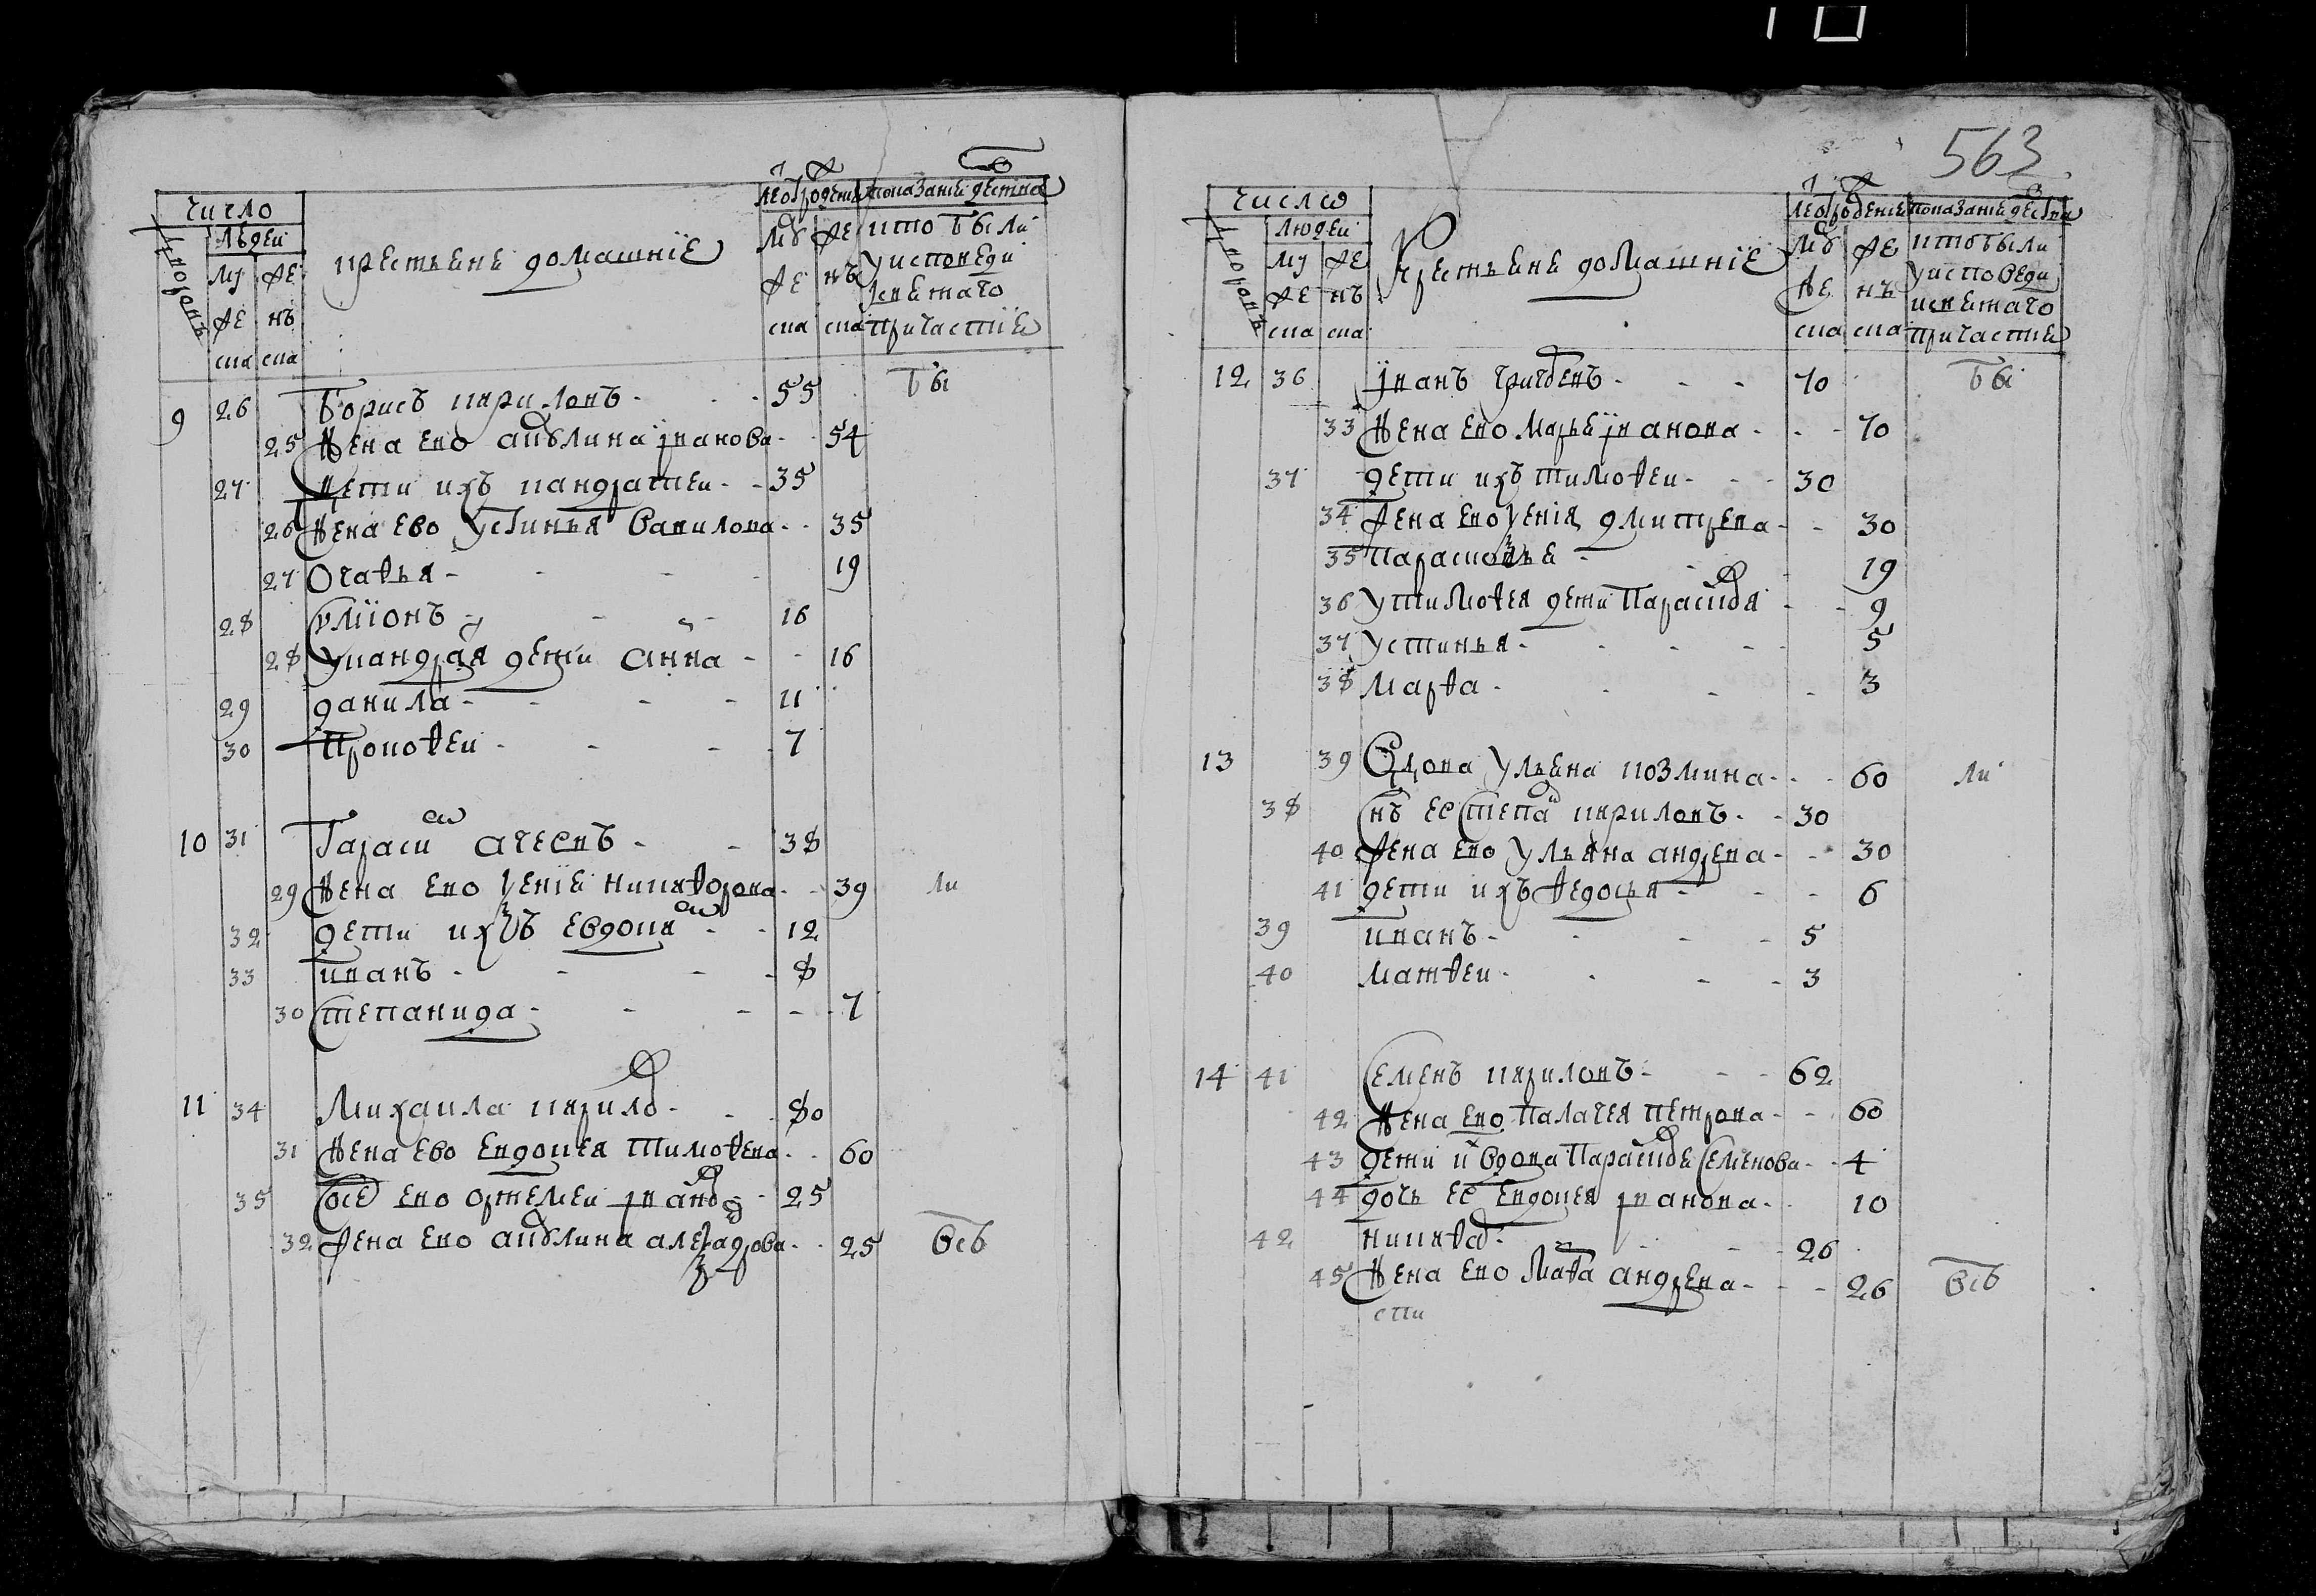 563
число
людеи
дворовъ
му же ска
же нъ ска
крестьяне домашнїе
лео рожденїя
му же ска
же нъ ска
показанїи действа
кто были
у исповеди
и светаго
причастїя
9 26 Борисъ кириловъ 55 бы
25 Жена ево акулина iванова 54
27 Дети ихъ кандратеи 35
26 Жена ево Устинья Савилова 35
27 Огафья 19
28 Симїонъ 16
28 У кандратя дети Анна 16
29 данила 11
30 Прокофеи 7
10 31 Гараси агеевъ 38
29 Жена ево ксенїя никифорова 39 ли
32 дети ихъ евдоки 12
33 иванъ 8
30 Степанида 7
11 34 Михаила кирило 80
31 Жена ево евдокея тимофева 60
35 ево ортемеи iвано 25
32 Жена ево акулина алеѯадрова 25 всѣ
число
людеи
дворовъ
му же ска
же нъ ска
Крестьяне домашнїе
лео рожденїя
му же ска
же нъ ска
показанїи действа
кто были
у исповеди
и светаго
причастїя
12 36 Iванъ григоевъ 70 бы
33 Жена ево марья iванова 70
37 дети ихъ тимофеи 30
34 Жена ево ксенїя дмитрева 30
35 парасковья 19
36 У тимофея дети Парасковя 9
37 устинья 5
38 марфа 3
13 39 Вдова Ульяна козмина 60 ли
38 Снъ ее Степа кириловъ 30
40 Жена ево Ульяна андрева 30
41 дети ихъ федосья 6
39 иванъ 5
40 матфеи 3
14 41 Семенъ кириловъ 62
42 Жена ево палагея петрова 60
43 дети и вдова Параскове Семенова 4
44 дочь ее евдокея iванова 10
42 никифо 26
45 Жена ево мафа андрева 26 всѣ